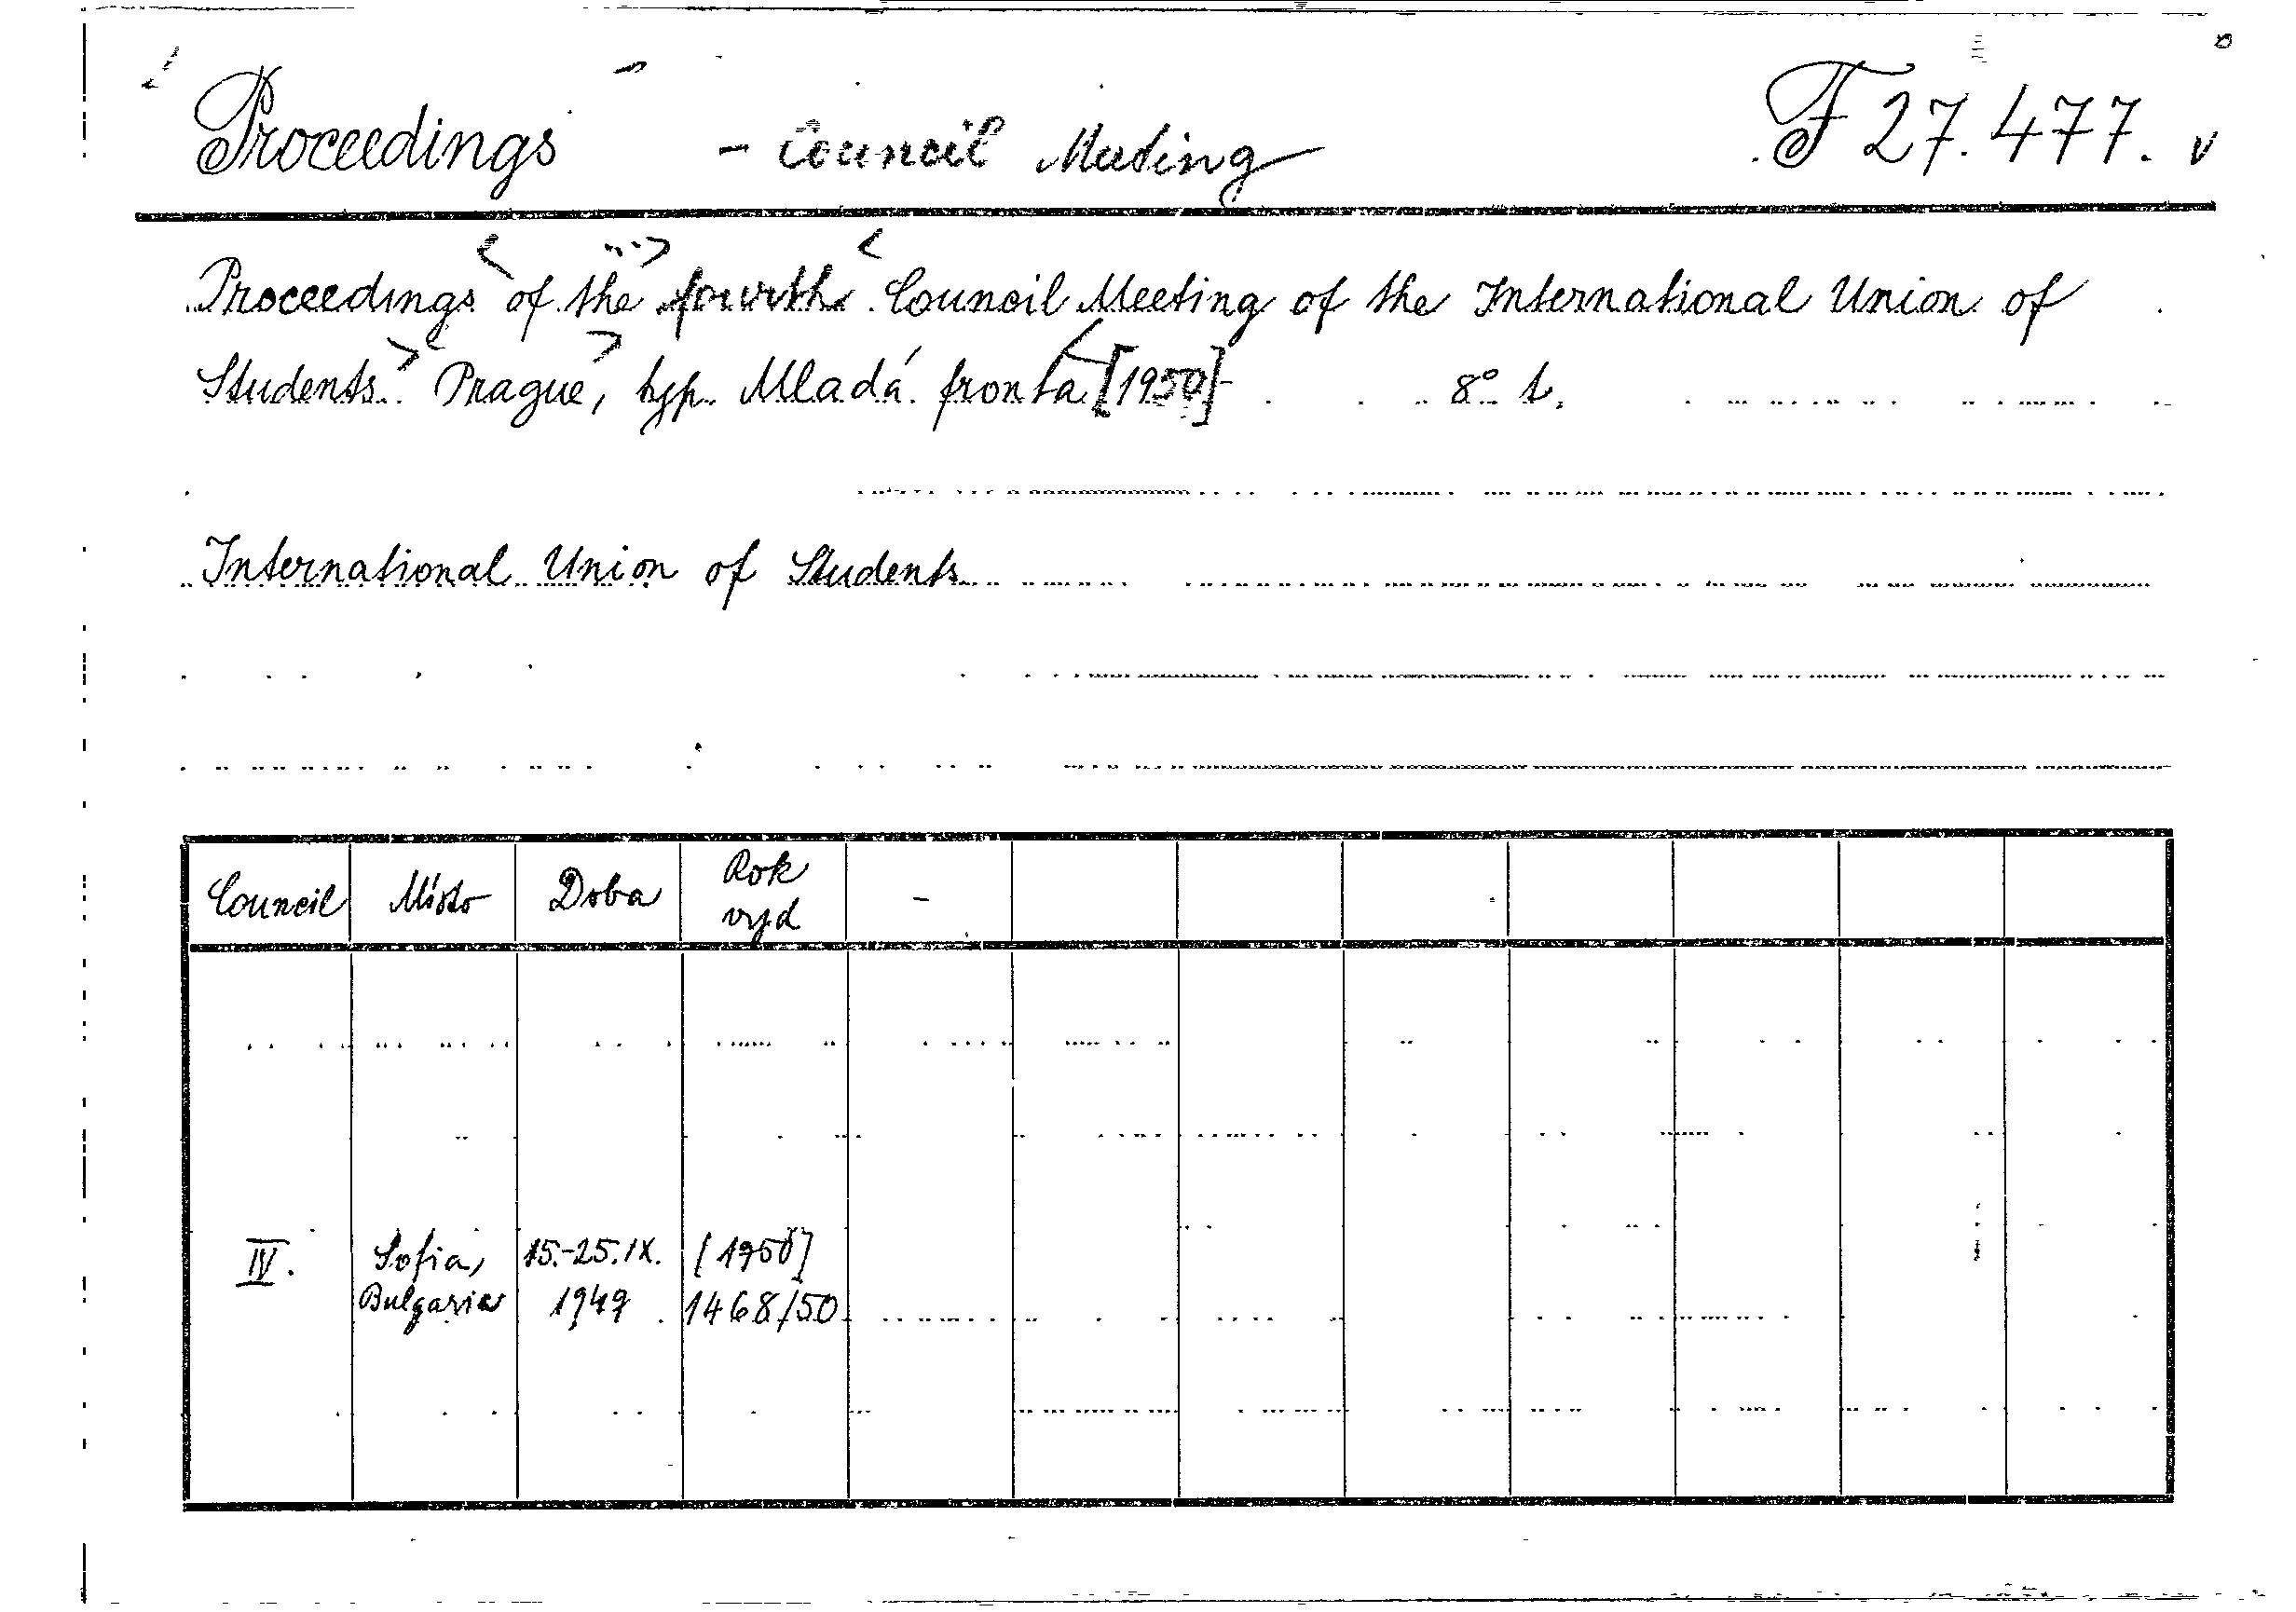 Proceedings - Council Meeting F 27.477.
Proceedings of the fourth Council Meeting of the International Union of
Students. Prague, typ. Mladá fronta [1950]- 8° b.
International Union of Students
Council Místo Doba Rok vyd
IV. Sofia, Bulgaria 15.-25.IX. 1949 [1950] 1468/50